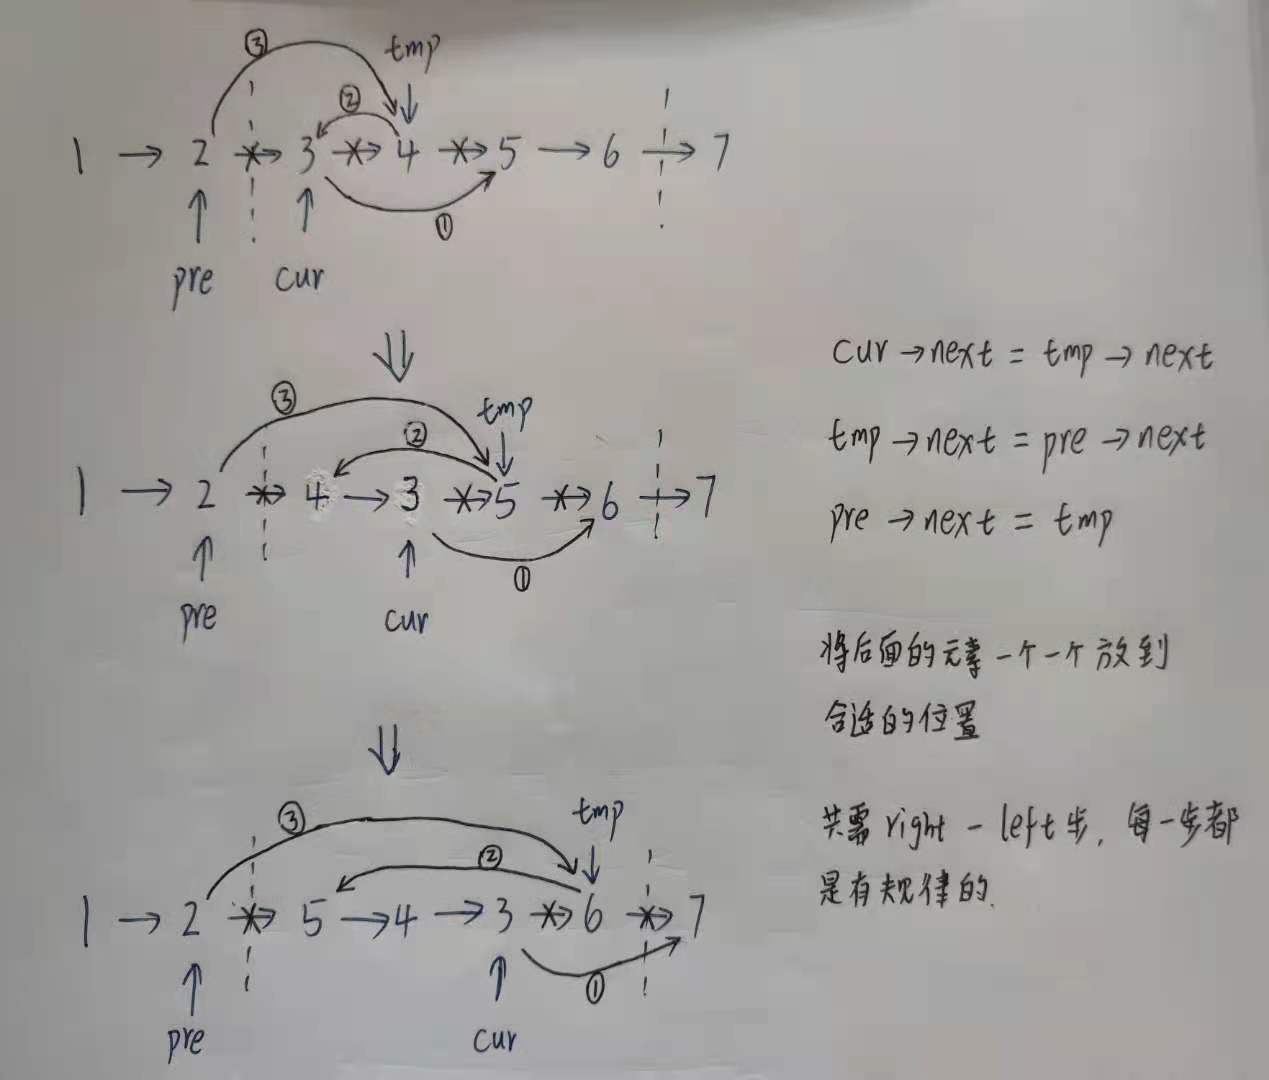 ③ tmp
②
1 → 2 → 3 → 4 → 5 → 6 → 7
①
pre cur
③ tmp
②
1 → 2 → 4 → 3 → 5 → 6 → 7
①
pre cur
③ tmp
②
1 → 2 → 5 → 4 → 3 → 6 → 7
①
pre cur
cur → next = tmp → next
tmp → next = pre → next
pre → next = tmp
将后面的元素一个一个放到
合适的位置
共需 right - left 步, 每一步都
是有规律的.